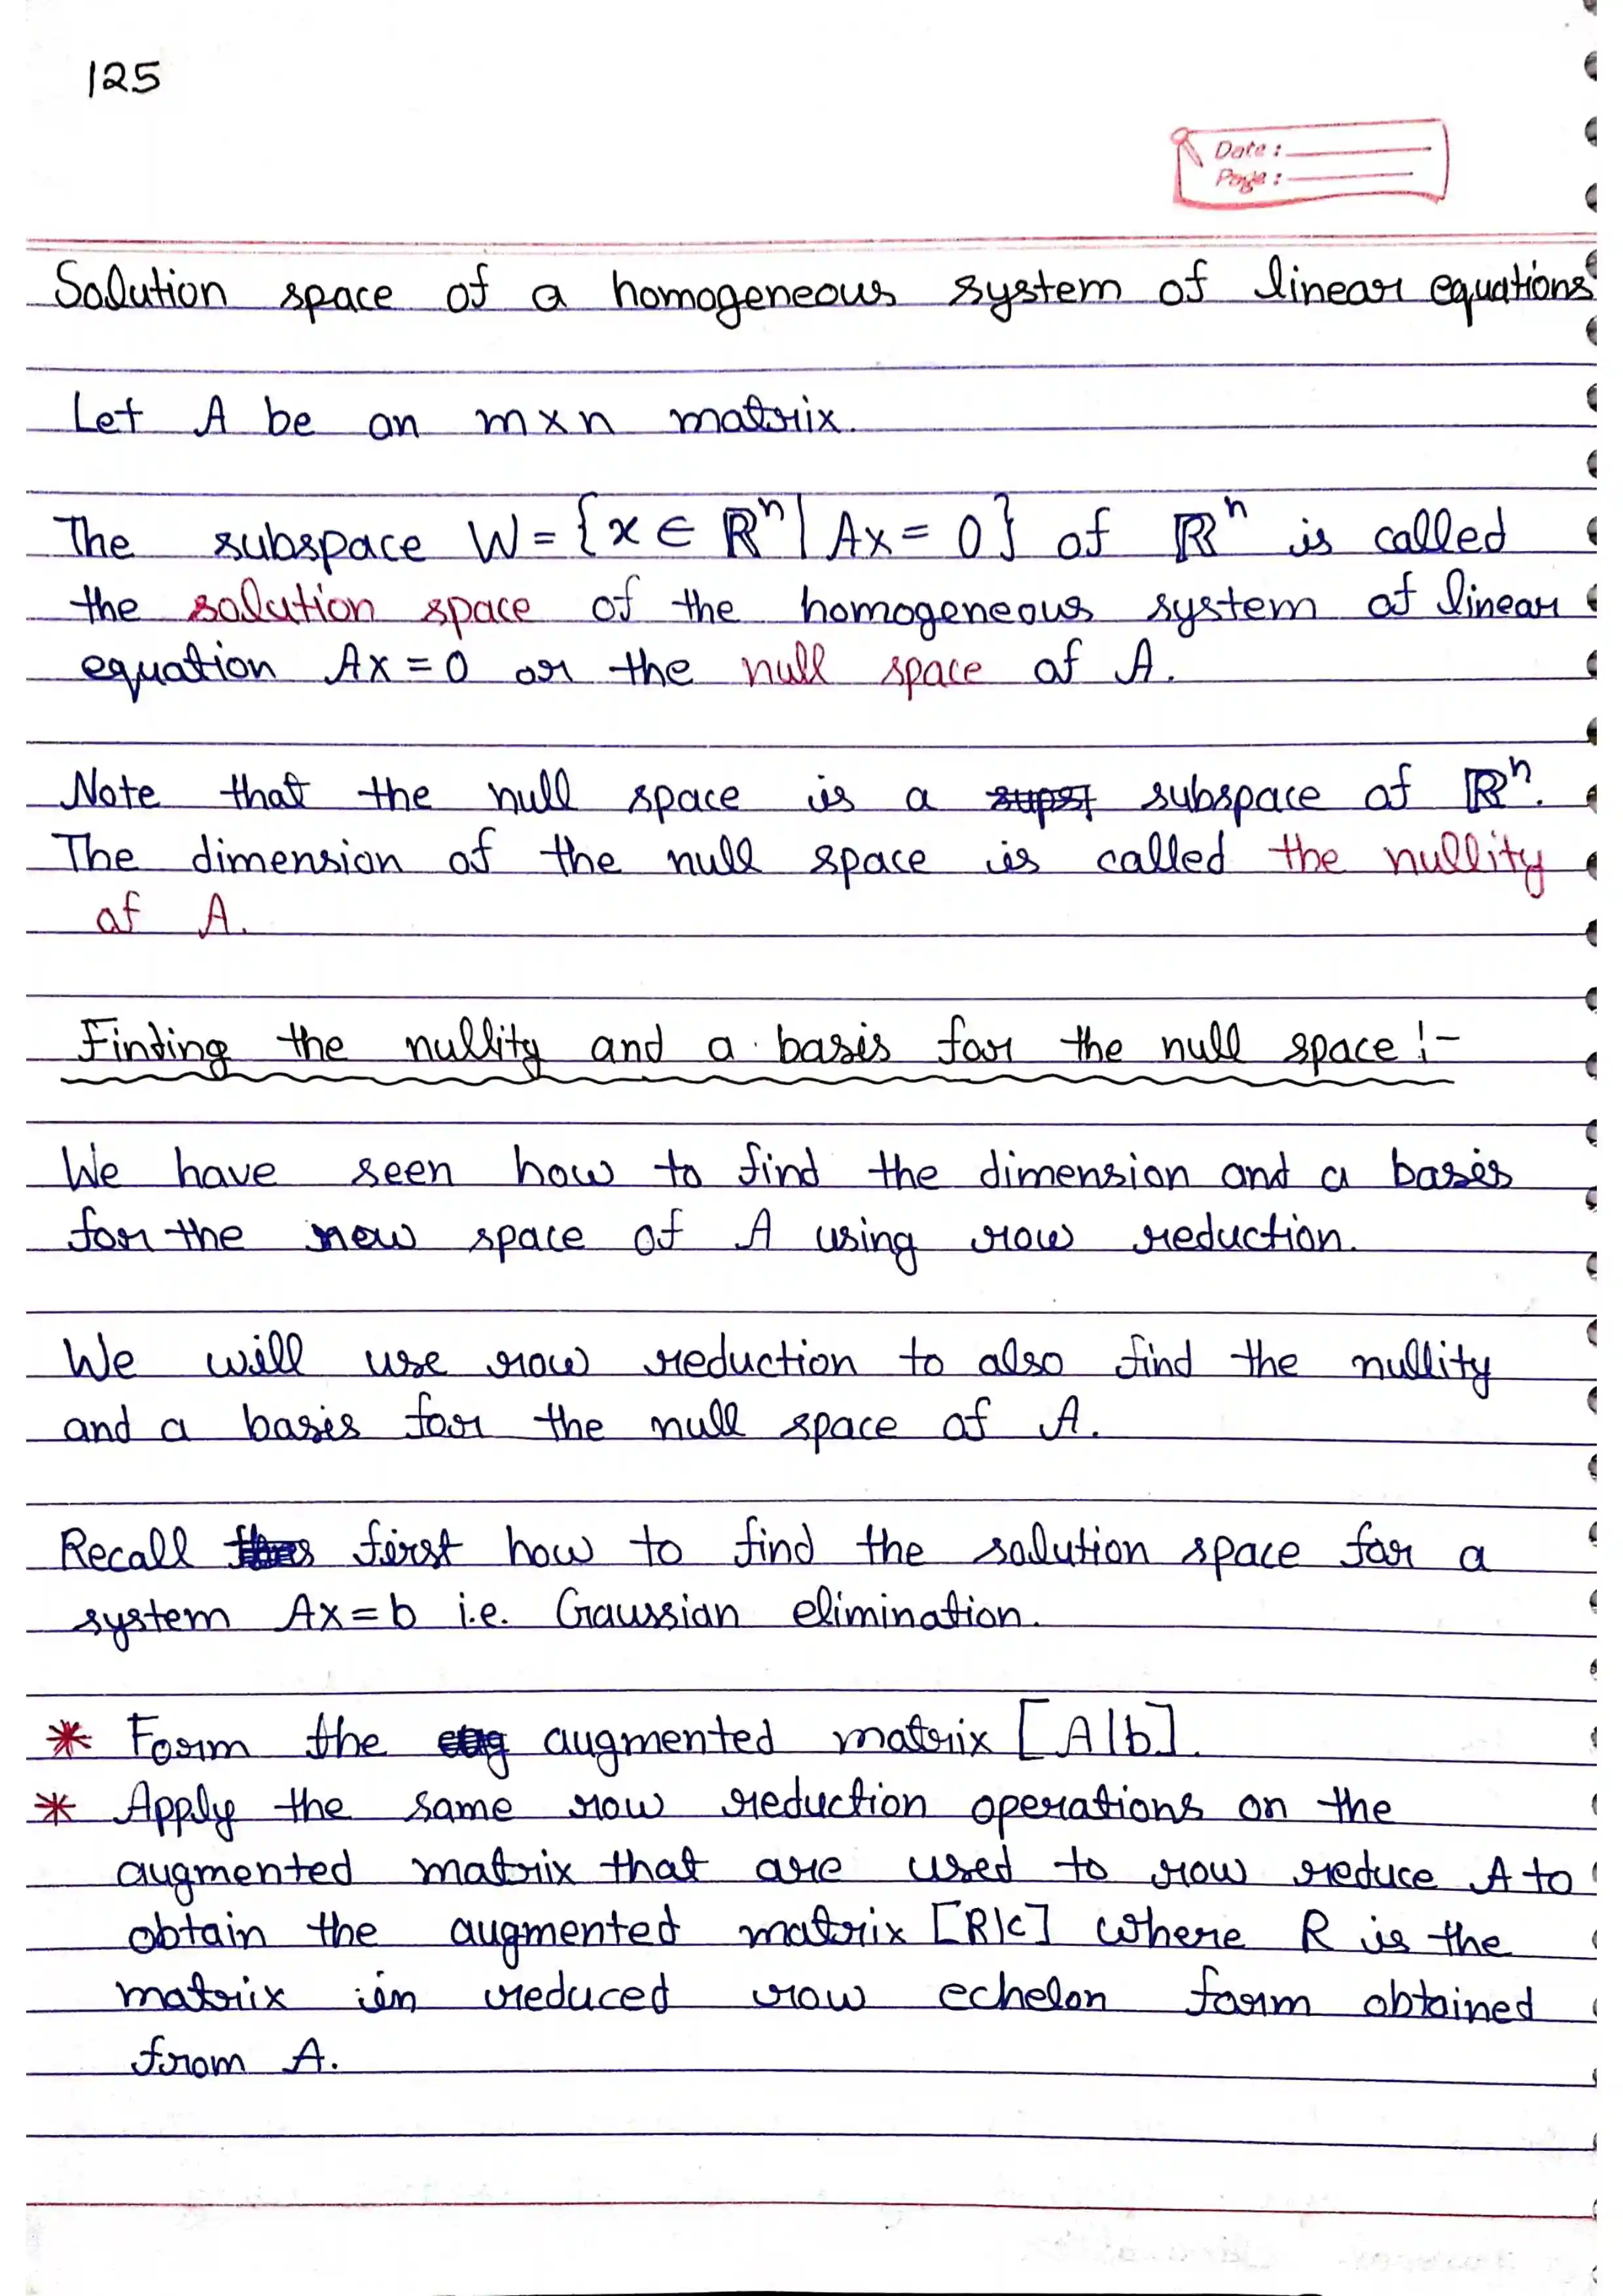 125
Date :
Page :
Solution space of a homogeneous system of linear equations
Let A be an m×n matrix.
The subspace W = {x ∈ ℝⁿ | Ax = 0} of ℝⁿ is called
the solution space of the homogeneous system of linear
equation Ax = 0 or the null space of A.
Note that the null space is a subspace of ℝⁿ.
The dimension of the null space is called the nullity
of A.
Finding the nullity and a basis for the null space :-
We have seen how to find the dimension and a basis
for the row space of A using row reduction.
We will use row reduction to also find the nullity
and a basis for the null space of A.
Recall first how to find the solution space for a
system Ax=b i.e. Gaussian elimination.
* Form the augmented matrix [A|b].
* Apply the same row reduction operations on the
augmented matrix that are used to row reduce A to
obtain the augmented matrix [R|c] where R is the
matrix in reduced row echelon form obtained
from A.